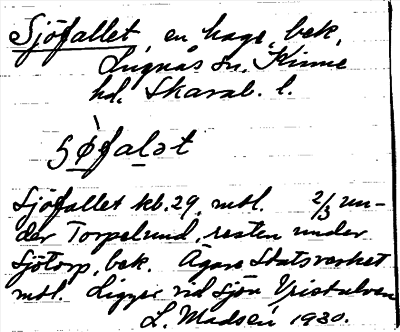 Sjöfallet, en hage, bek.
Lugnås sn. Kinne
hd. Skarab. l.
sø̀falət
Sjöfallet kb. 29. mtl. 2/3 un-
der Torpelund, resten under
Sjötorp, bek. Ägare Statsverket
mtl. Ligger vid sjön
L. Madsén 1930.